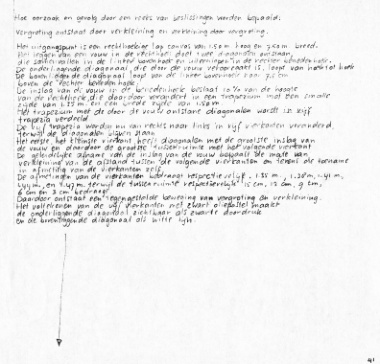 Hoe oorzaak en gevolg door een reeks van beslissingen worden bepaald.
Vergroting ontstaat door verkleining en verkleining door vergroting.
Het uitgangspunt is een rechthoekige lap canvas van 1.50 m hoog en 7.50 m breed.
Het leggen van een vouw in de rechthoek doet twee diagonalen ontstaan,
die samenvallen in de linker bovenhoek en uiteenlopen in de rechter benedenhoek.
De onderliggende diagonaal die door de vouw veroorzaakt is, loopt van hoek tot hoek
De bovenliggende diagonaal loopt van de linker bovenhoek naar
boven de rechter benedenhoek.
De inslag van de vouw in de benedenhoek beslaat 10% van de hoogte
van de rechthoek die daardoor verandert in een trapezium met een smalle
zijde van 1.35 m. en een brede zijde van 1.50 m
Het trapezium met de door de vouw ontstane diagonalen wordt in vijf
trapezia verdeeld
De vijf trapezia worden nu van rechts naar links in vijf vierkanten veranderd,
terwijl de diagonalen blijven staan
Het eerste, het kleinste vierkant heeft diagonalen met de grootste inslag van
de vouw en daardoor de grootste tussenruimte met het volgende vierkant
De geleidelijke afname van de inslag van de vouw bepaalt de mate van
verkleining van de afstand tussen de volgende vierkanten en tevens de toename
in afmeting van de vierkanten zelf.
De afmetingen van de vierkanten bedragen respectievelijk, 1.35 m., 1.38 m., 1.41 m,
1.44 m, en 1.47 m. terwijl de tussenruimte respectievelijk 15 cm, 12 cm, 9 cm,
6 cm en 3 cm bedraagt
Daardoor ontstaat een tegengestelde beweging van vergroting en verkleining.
Het voltekenen van de vijf vierkanten met zwart oliepastel maakt
de onderliggende diagonaal zichtbaar als zwarte doordruk
en de bovenliggende diagonaal als witte lijn.
41